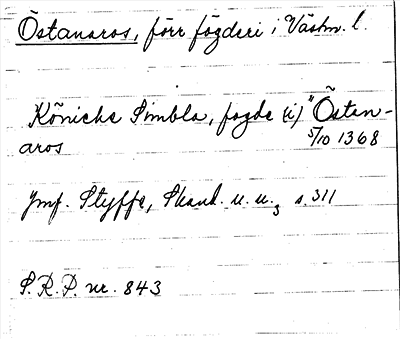 Östanaros, förr fögderi i Västm. l.
Köniche Simbla, fogde (i) "Östan-
aros 5/10 1368
Jmf. Styffe, Skand. u. u.3 s. 311
S.R.P. nr. 843